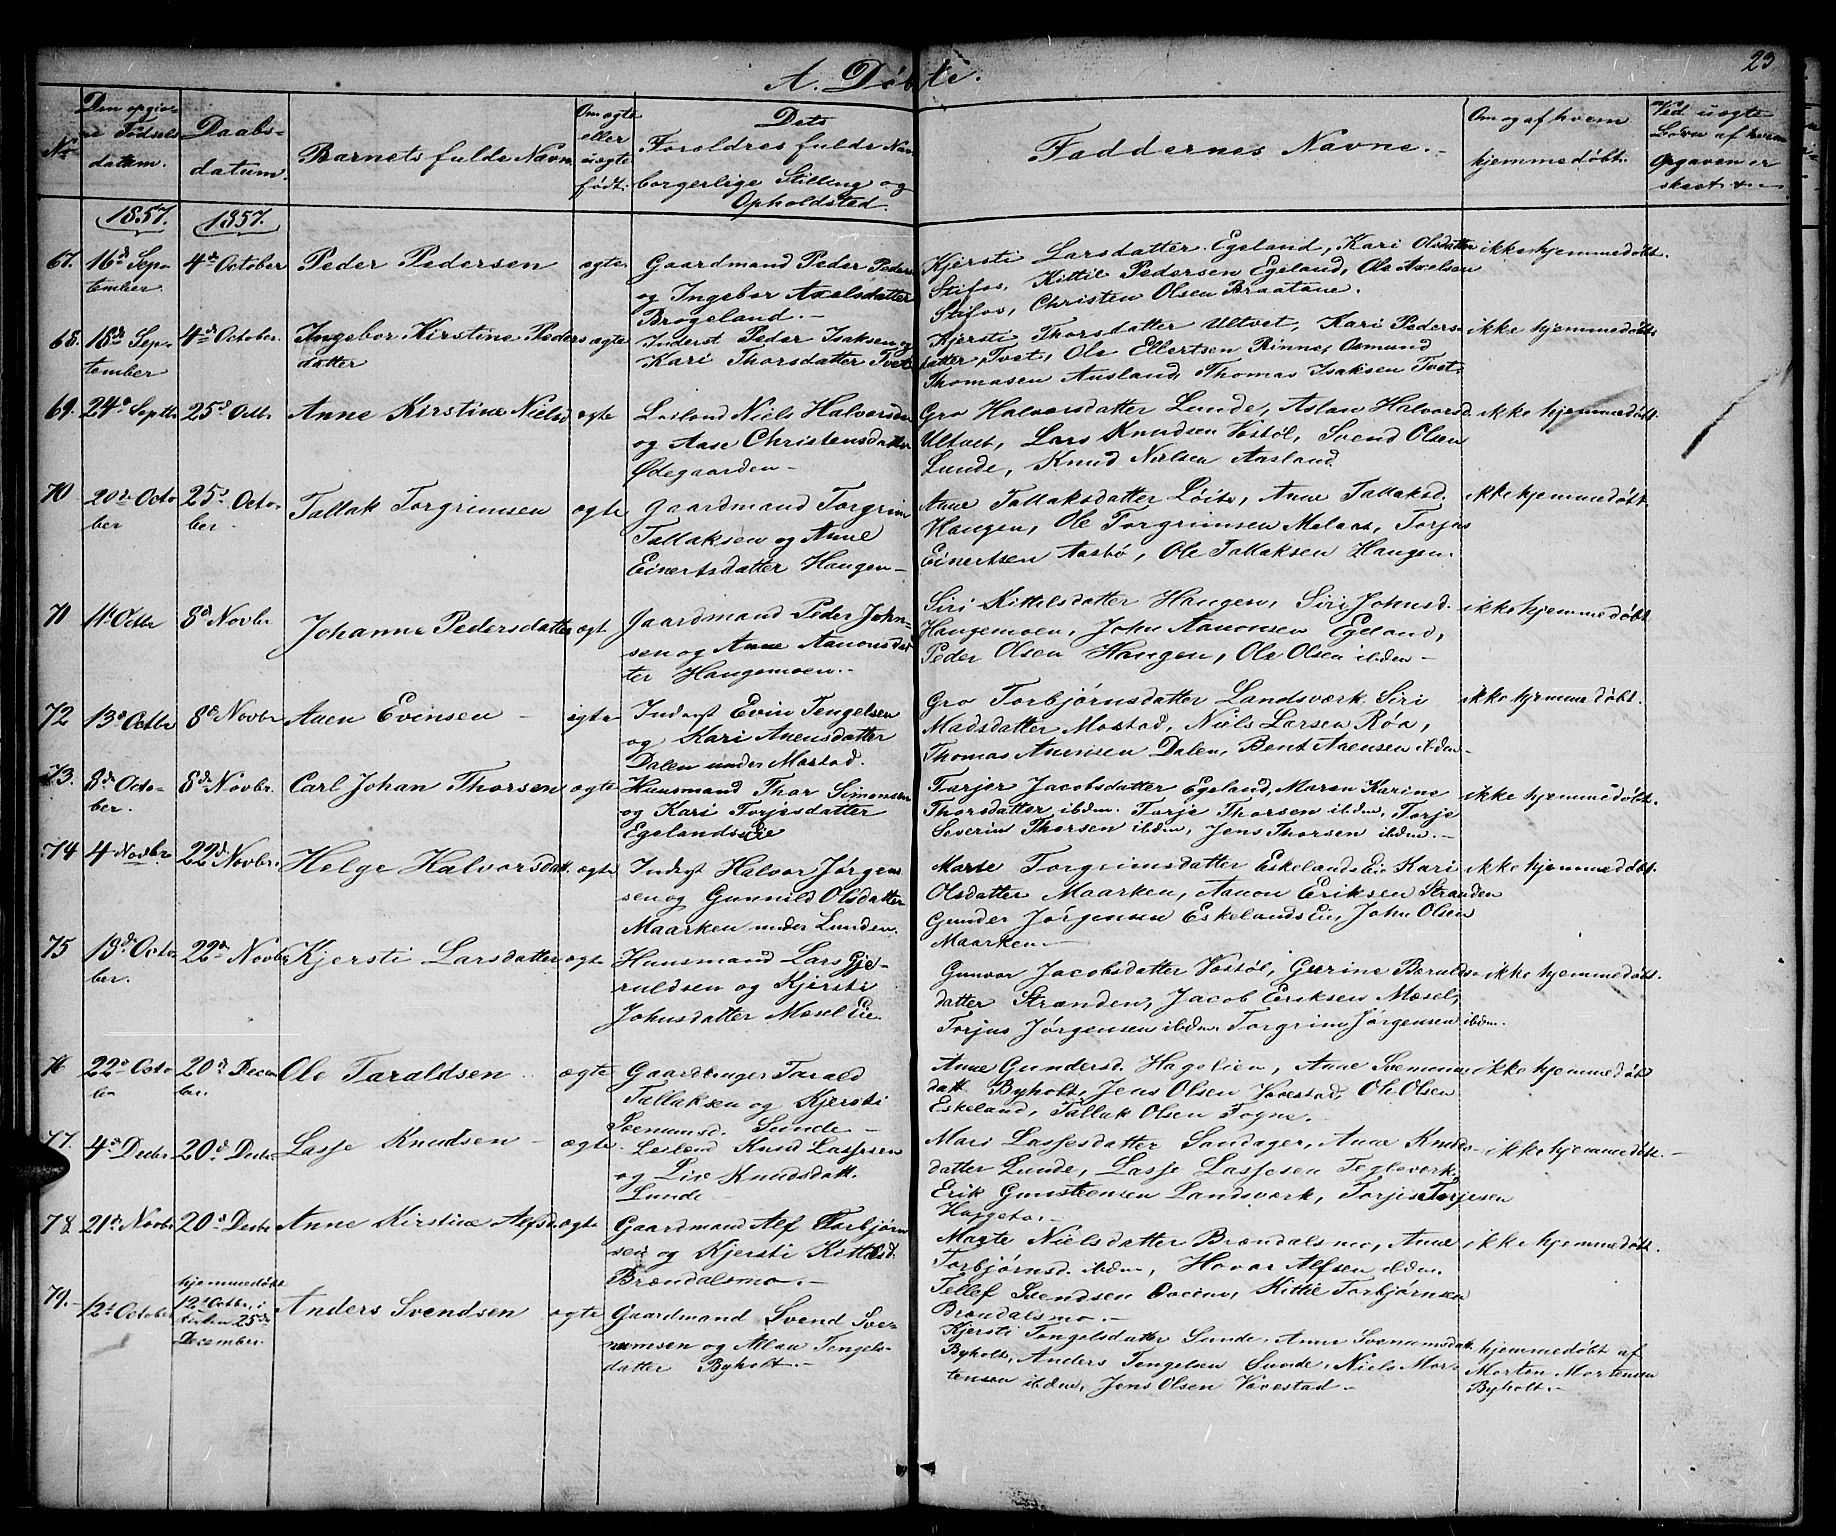 A. Døbte.
23
No
Den opgiv-
ne Fødsels
datum.
Daabs-
datum.
Barnets fulde Navn
Om ægte
eller
uægte
født.
Dets
Foreldres fulde Nav
borgerlige Stilling og
Opholdsted.
Faddernes Navne.
Om og af hvem
hjemmedøbt.
Ved uægte
af hvem
Opgaven er
skeet
1857.
1857.
67. 16de Sep-
tember.
4de October
Peder Pedersen
ægte.
Gaardmand Peder Peders
og Ingebor Axelsdatter
Brogeland.
Kjersti Larsdatter Egeland, Kari Olsdatter
Stifos, Kittil Pedersen Egeland, Ole Axelsen
Stifos, Christen Olsen Braatane.
ikke hjemmedøbt.
68. 18de Sep-
tember
4de October.
Ingebor Kirstine Peders
datter
ægte
Inderst Peder Isaksen og
Kari Thorsdatter Tvet
Kjersti Thorsdatter Ultvet, Kari Peders-
datter Tvet, Ole Ellertsen Rinne, Osmund
Thomasen Ausland, Thomas Isaksen Tvet.
ikke hjemmedøbt
69. 24de Septbr
25de Octbr
Anne Kirstine Nielsd
ægte
Leilænd Niels Halvorsen
og Aase Christensdatter
Ødegaarden
Gro Halvorsdatter Lunde, Aslau Halvorsd.
Ultvet, Lars Knudsen Vostøl, Svend Olsen
Lunde, Knud Nielsen Aasland.
ikke hjemmedøbt.
70 20de Octo-
ber
25de Octo-
ber.
Tallak Torgrimsen
ægte
Gaardmand Torgrim
Tallaksen og Anne
Einertsdatter Haugen
Anne Tallaksdatter Løite, Anne Tallaksd.
Haugen, Ole Torgrimsen Melaas, Torjus
Einertsen Aasbø, Ole Tallaksen Haugen.
ikke hjemmedøbt.
71 11te Octbr
8de Novbr
Johanne Pedersdatter
ægte
Gaardmand Peder John-
sen og Anne Aanonsdat
ter Haugemoen.
Siri Kittelsdatter Haugen, Siri Johnsd.
Haugemoen, John Aanonsen Egeland,
Peder Olsen Haugen, Ole Olsen ibden
ikke hjemmedøbt
72 13de Octbr
8de Novbr
Anen Evinsen
ægte
Inderst Evin Tengelsen
og Kari Anensdatter
Dalen under Mostad.
Gro Torbjørnsdatter Landsværk Siri
Madsdatter Mostad, Niels Larsen Røa,
Thomas Anensen Dalen, Bent Anensen ibden
ikke hjemmedøbt.
73. 8de Octo-
ber.
8de Novbr.
Carl Johan Thorsen
ægte
Huusmand Thor Simonsen
og Kari Torjesdatter
Egelands Eie
Torjer Jacobsdatter Egeland, Maren Karine
Thorsdatter ibden. Torje Thorsen ibden, Torje
Severin Thorsen ibden, Jens Thorsen ibden.
ikke hjemmedøbt.
74 4 Novbr
22de Novbr.
Helge Halvorsdatt.
ægte
Inderst Halvor Jørgen
sen og Gunnild Olsdatter
Maarken under Lunden.
Marte Torgrimsdatter Eskelands Eie Kari
Olsdatter Maarken, Aanon Eriksen Stranden
Gunder Jørgensen Eskelands Eie, John Olsen
Maarken
ikke hjemmedøbt.
75 13de Octo-
ber.
22de Novbr
Kjersti Larsdatter
ægte
Huusmand Lars Gje-
ruldsen og Kjersti
Johnsdatter Mæsel Eie.
Gunvor Jacobsdatter Vostøl, Gurine Beruldsen
datter Stranden, Jacob Eriksen Mæsel,
Torjus Jørgensen ibden, Torgrim Jørgensen ibden.
ikke hjemmedøbt.
76 22de Octo
ber
20de Decem
ber.
Ole Taraldsen
ægte
Gaardbruger Tarald
Tallaksen og Kjersti
Svenumsd. Lunde
Anne Gundersd. Hagelien, Anne Svenums
datt. Byholt, Jens Olsen Vovestad, Ole Olsen
Eskeland, Tallak Olsen Togne.
ikke hjemmedøbt
77. 4de Decbr
20de Decbr
Lasse Knudsen
ægte
Leilænd Knud Lassesen
og Liv Knudsdatt.
Lunde
Mari Lassesdatter Sandager, Anne Knuds-
datter Lunde, Lasse Lassesen Teglverk,
Erik Gunstensen Landsværk, Torjus Torjesen
Haggeto.
ikke hjemmedøbt.
78. 21de Novbr
20de Decbr
Anne Kirstine Alfsd.
ægte
Gaardmand Alf Torbjørn
sen og Kjersti Kittelsd.
Brændalsmo.
Magte Nielsdatter Brændalsmo, Anne
Torbjørnsd. ibden, Hovar Alfsen ibden.
Tellef Svendsen, Kittil Torbjørnsen
Brændalsmo.
ikke hjemmedøbt.
79. 12te October
hjemmedøbt
12te Octbr. i
Kirken 25de
December.
Anders Svendsen
ægte
Gaardmand Svend Sve-
numsen og Alau Tengels-
datter Byholt.
Kjersti Tengelsdatter Lunde, Anne Svenumsdatt
Byholt, Anders Tengelsen Lunde, Niels Mor-
tensen ibden, Jens Olsen Vovestad
hjemmedøbt af
Morten Mortensen
Byholt.